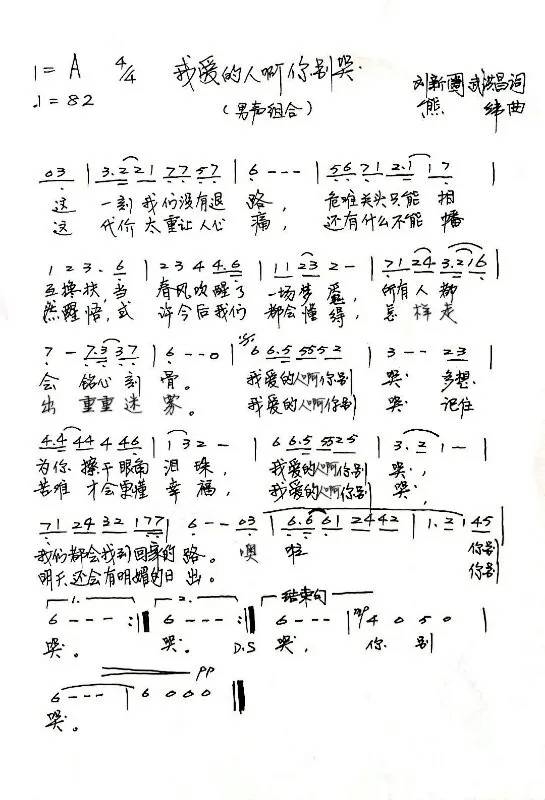 1=A 4/4 我爱的人啊你别哭
♩=82 （男声组合） 刘新圈 武洪昌词
熊 纬曲
03 | 3.221 77 57 | 6 - - - | 56 71 2.1 17 |
这 一刻我们没有退 路， 危难关头只能 相
这 代价太重让人心 痛， 还有什么不能 幡
1 2 3. 6 | 2 3 4 4.6 | 11 23 2 - | 71 24 3.216 |
互搀扶，当 春风吹醒了 一场梦魇， 所有人都
然醒悟，或 许今后我们 都会懂得， 怎样走
7 - 7.3 37 | 6 - - 0 | 6 6.5 5552 | 3 - - 23 |
会 铭心刻 骨。 我爱的人啊你别 哭 多想
出 重重迷 雾。 我爱的人啊你别 哭 记住
4.4 44 4 46 | 1 3 2 - | 6 6.5 5525 | 3. 2 1 - |
为你 擦干眼角 泪珠， 我爱的人啊你别 哭，
苦难 才会更懂 幸福， 我爱的人啊你别 哭，
71 24 32 177 | 6 - - 03 | 6.6 61 2442 | 1. 2 1 45 |
我们都会找到回家的 路。 噢 啦 你别
明天还会有明媚的日 出。 你别
1. 2. 结束句
6 - - - :‖ 6 - - - :‖ 6 - - - | mp 4 0 5 0 |
哭。 哭。 D.S 哭， 你 别
pp
6 - - - | 6 0 0 0 ‖
哭。